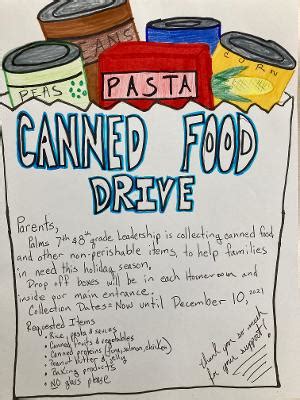 BEANS
PEAS
PASTA
CORN
CANNED FOOD
DRIVE
Parents,
Palms 7th & 8th grade Leadership is collecting canned food
and other non-perishable items, to help families
in need this holiday season.
Drop off boxes will be in each Homeroom and
inside our main entrance.
Collection Dates = Now until December 10, 2021
Requested Items
• Rice, pasta & sauces
• Canned fruits & vegetables
• Canned proteins (tuna, salmon, chicken)
• Peanut butter & jelly
• Baking products
• NO glass please
thank you so much
for your support!